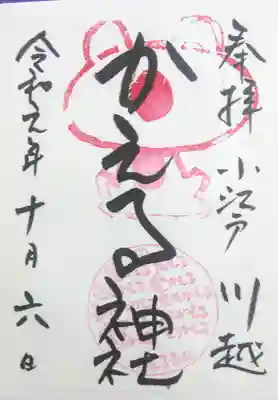 奉拝 小江戸 川越
かえる神社
令和元年十月六日